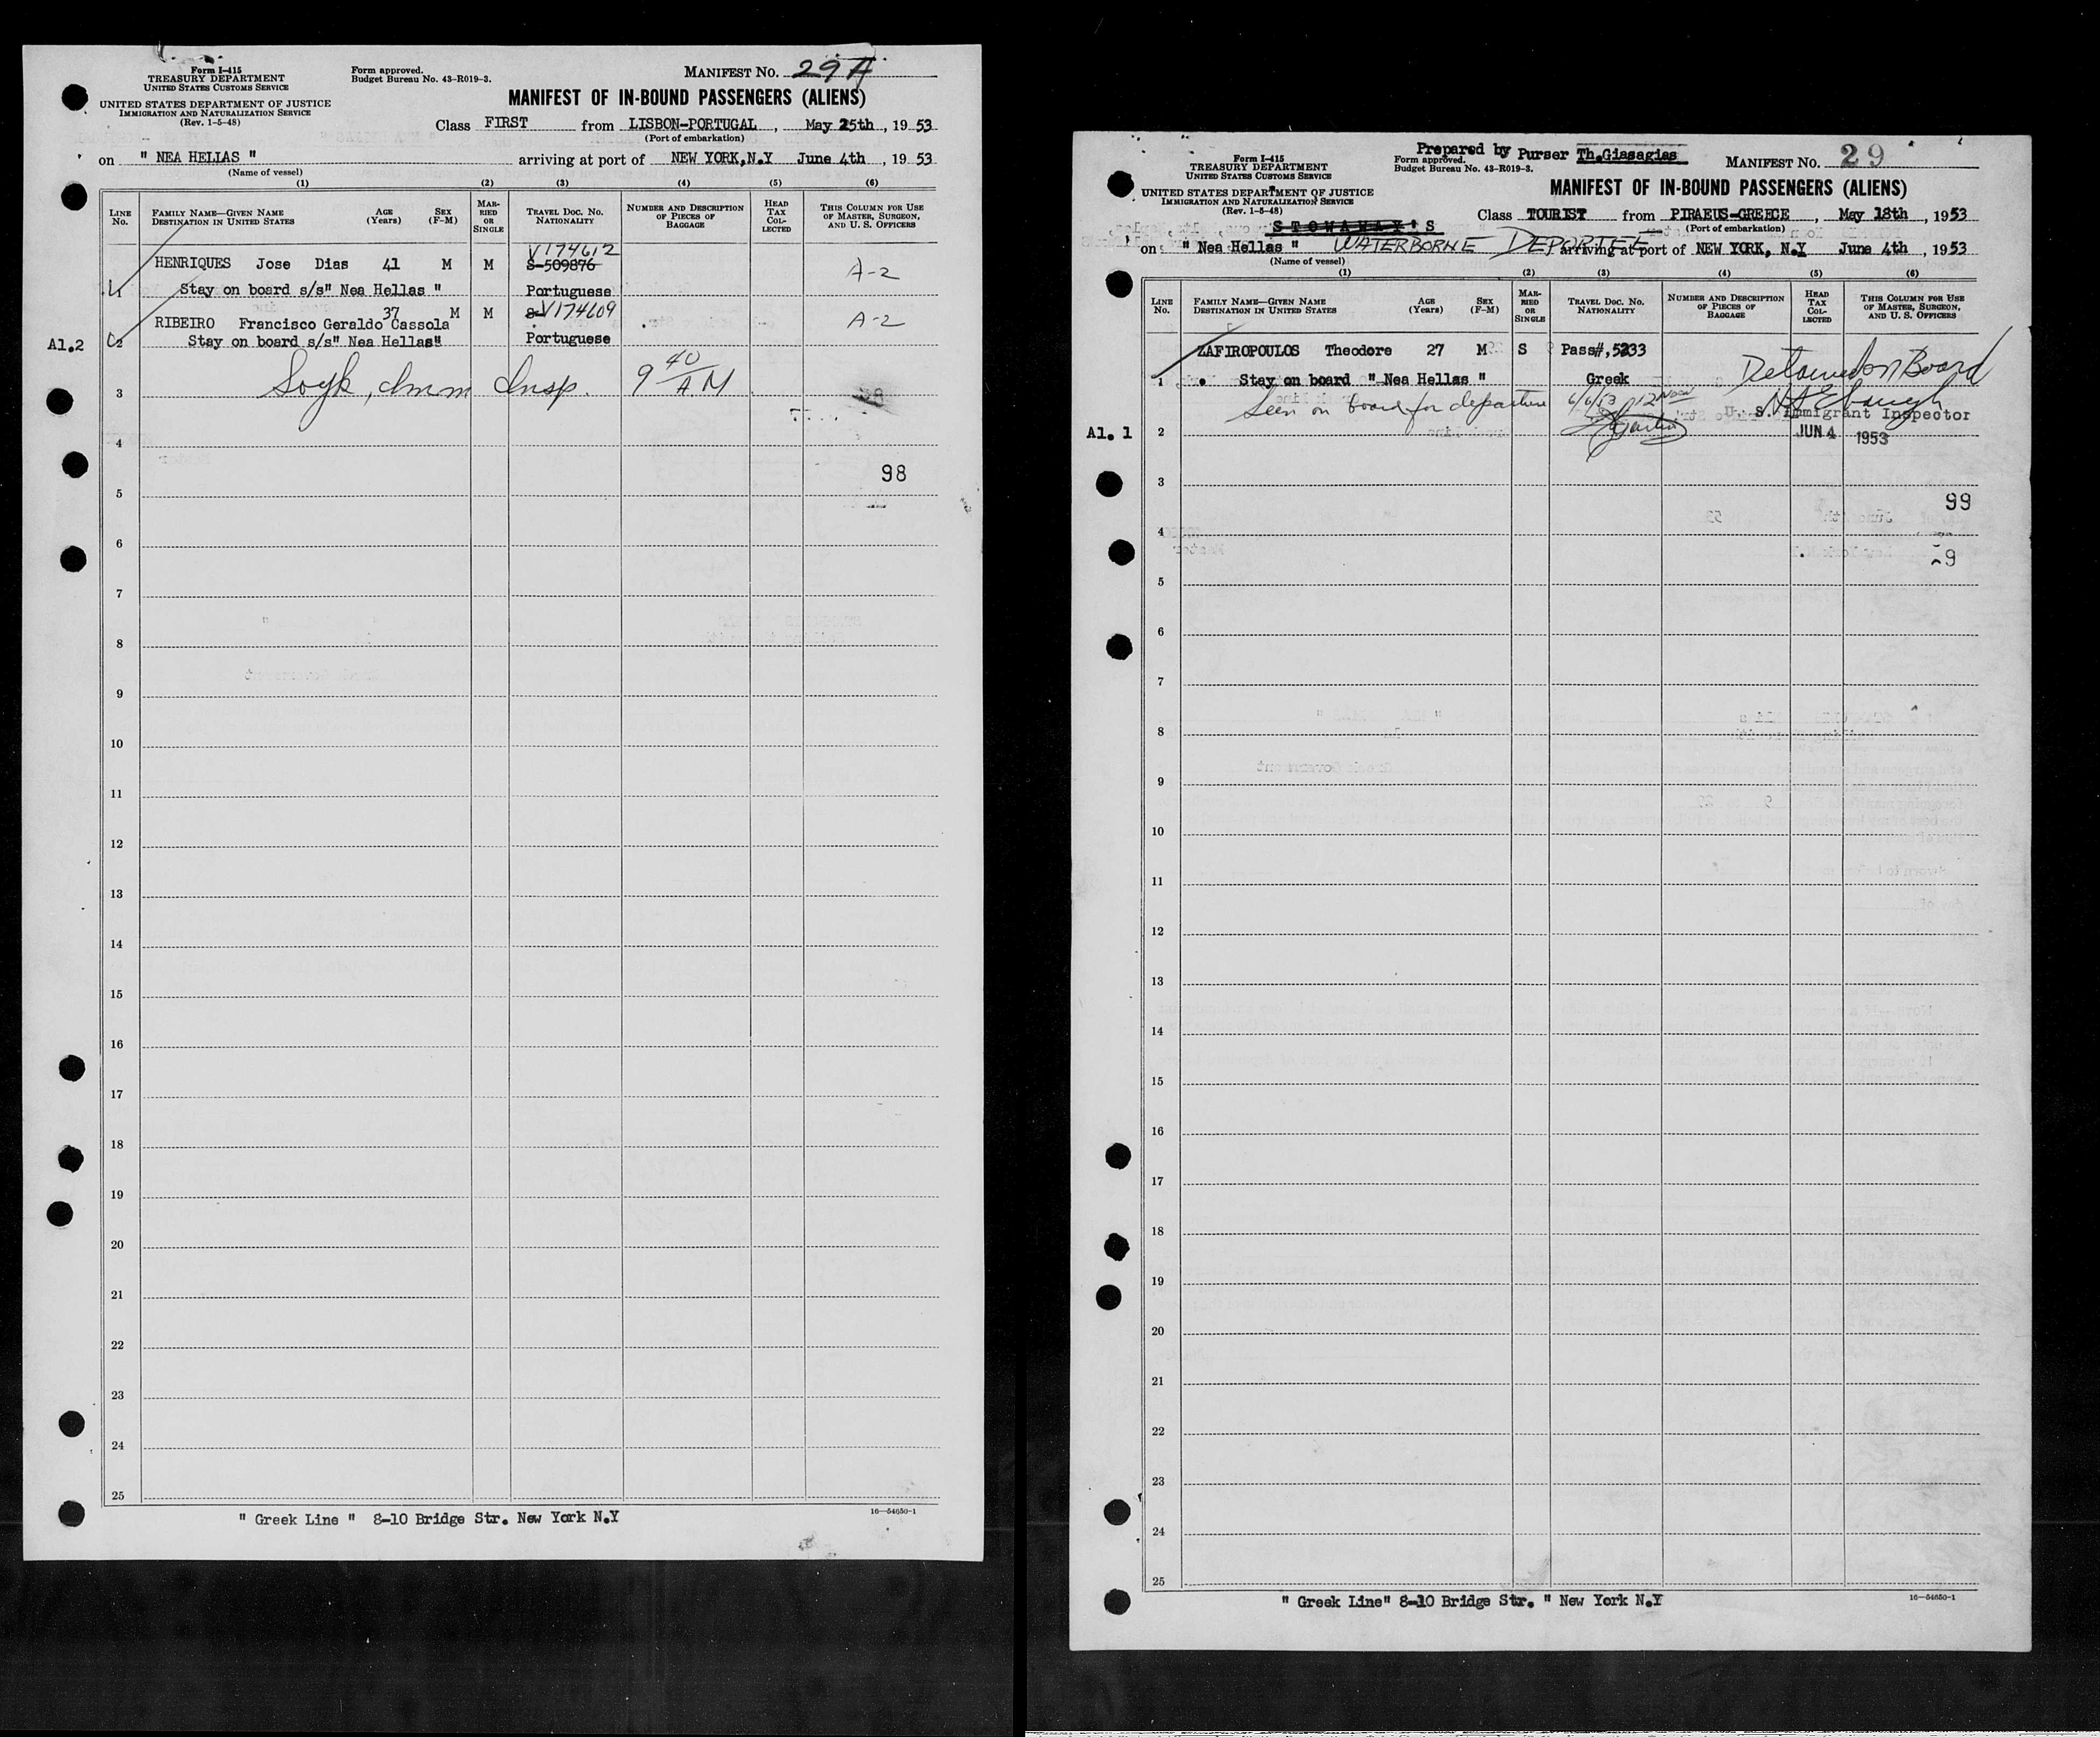 Form I-415
TREASURY DEPARTMENT
UNITED STATES CUSTOMS SERVICE
UNITED STATES DEPARTMENT OF JUSTICE
IMMIGRATION AND NATURALIZATION SERVICE
(Rev. 1-5-48)
Form approved.
Budget Bureau No. 43-R019-3.
MANIFEST NO. 29A
MANIFEST OF IN-BOUND PASSENGERS (ALIENS)
Class FIRST from LISBON-PORTUGAL , May 25th , 19 53
(Port of embarkation)
on " NEA HELLAS " arriving at port of NEW YORK,N.Y June 4th , 19 53
(Name of vessel)
(1) (2) (3) (4) (5) (6)
LINE NO.
FAMILY NAME—GIVEN NAME
DESTINATION IN UNITED STATES
AGE (Years)
SEX (F-M)
MARRIED OR SINGLE
TRAVEL DOC. NO. NATIONALITY
NUMBER AND DESCRIPTION OF PIECES OF BAGGAGE
HEAD TAX COLLECTED
THIS COLUMN FOR USE OF MASTER, SURGEON, AND U. S. OFFICERS
V174612
HENRIQUES Jose Dias 41 M M S-509876 A-2
1 Stay on board s/s" Nea Hellas " Portuguese
RIBEIRO Francisco Geraldo Cassola 37 M M V174609 A-2
A1.2
2 Stay on board s/s" Nea Hellas" Portuguese
3 Soyk, Imm Insp. 9 40 A.M
4
98
5
6
7
8
9
10
11
12
13
14
15
16
17
18
19
20
21
22
23
24
25
" Greek Line " 8-10 Bridge Str. New York N.Y
16—54650-1
Prepared by Purser Th.Giasagias
Form I-415
TREASURY DEPARTMENT
UNITED STATES CUSTOMS SERVICE
UNITED STATES DEPARTMENT OF JUSTICE
IMMIGRATION AND NATURALIZATION SERVICE
(Rev. 1-5-48)
Form approved.
Budget Bureau No. 43-R019-3.
MANIFEST NO. 29
MANIFEST OF IN-BOUND PASSENGERS (ALIENS)
Class TOURIST from PIRAEUS-GREECE , May 18th , 1953
STOWAWAY'S
(Port of embarkation)
on " Nea Hellas " WATERBORNE DEPORTEE arriving at port of NEW YORK, N.Y June 4th , 1953
(Name of vessel)
(1) (2) (3) (4) (5) (6)
LINE NO.
FAMILY NAME—GIVEN NAME
DESTINATION IN UNITED STATES
AGE (Years)
SEX (F-M)
MARRIED OR SINGLE
TRAVEL DOC. NO. NATIONALITY
NUMBER AND DESCRIPTION OF PIECES OF BAGGAGE
HEAD TAX COLLECTED
THIS COLUMN FOR USE OF MASTER, SURGEON, AND U. S. OFFICERS
ZAFIROPOULOS Theodore 27 M S Pass#,5233
Detained on Board
1 Stay on board " Nea Hellas " Greek
Seen on board for departure 6/6/53 12 Noon
U. S. Immigrant Inspector
A1. 1
2 JUN 4 1953
3
99
4
5
6
7
8
9
10
11
12
13
14
15
16
17
18
19
20
21
22
23
24
25
" Greek Line" 8-10 Bridge Str. " New York N.Y
16—54650-1